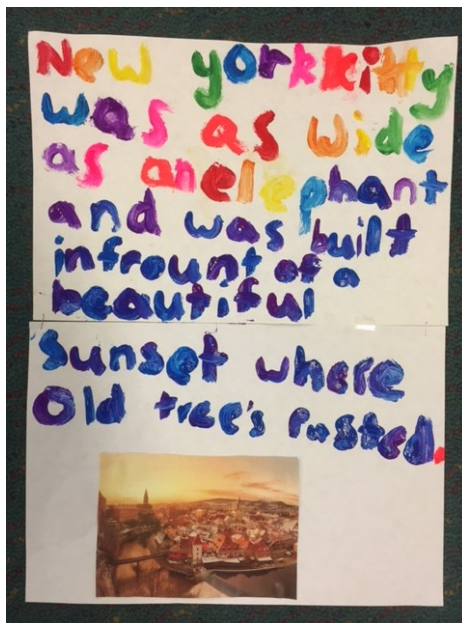 New yorkkitty
was as wide
as anelephant
and was built
infrount of a
beautiful
Sunset where
Old tree's rusted.